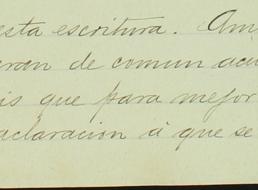 esta escritura. Am
eran de comun acu
is que para mejor
aclaracion á que se